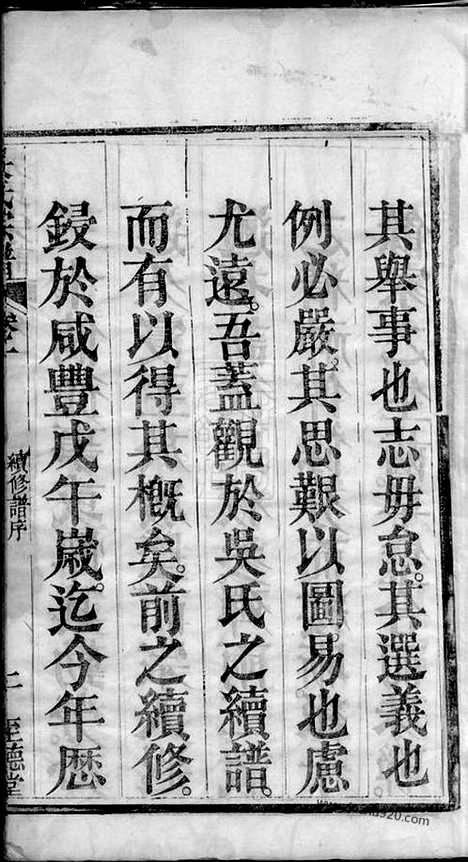 其舉事也志毋怠。其選義也
例必嚴。其思艱以圖易也慮
尤遠。吾蓋觀於吳氏之續譜。
而有以得其概矣。前之續修。
鋟於咸豐戊午歲。迄今年歷
卷一
續修譜序
二
至德堂